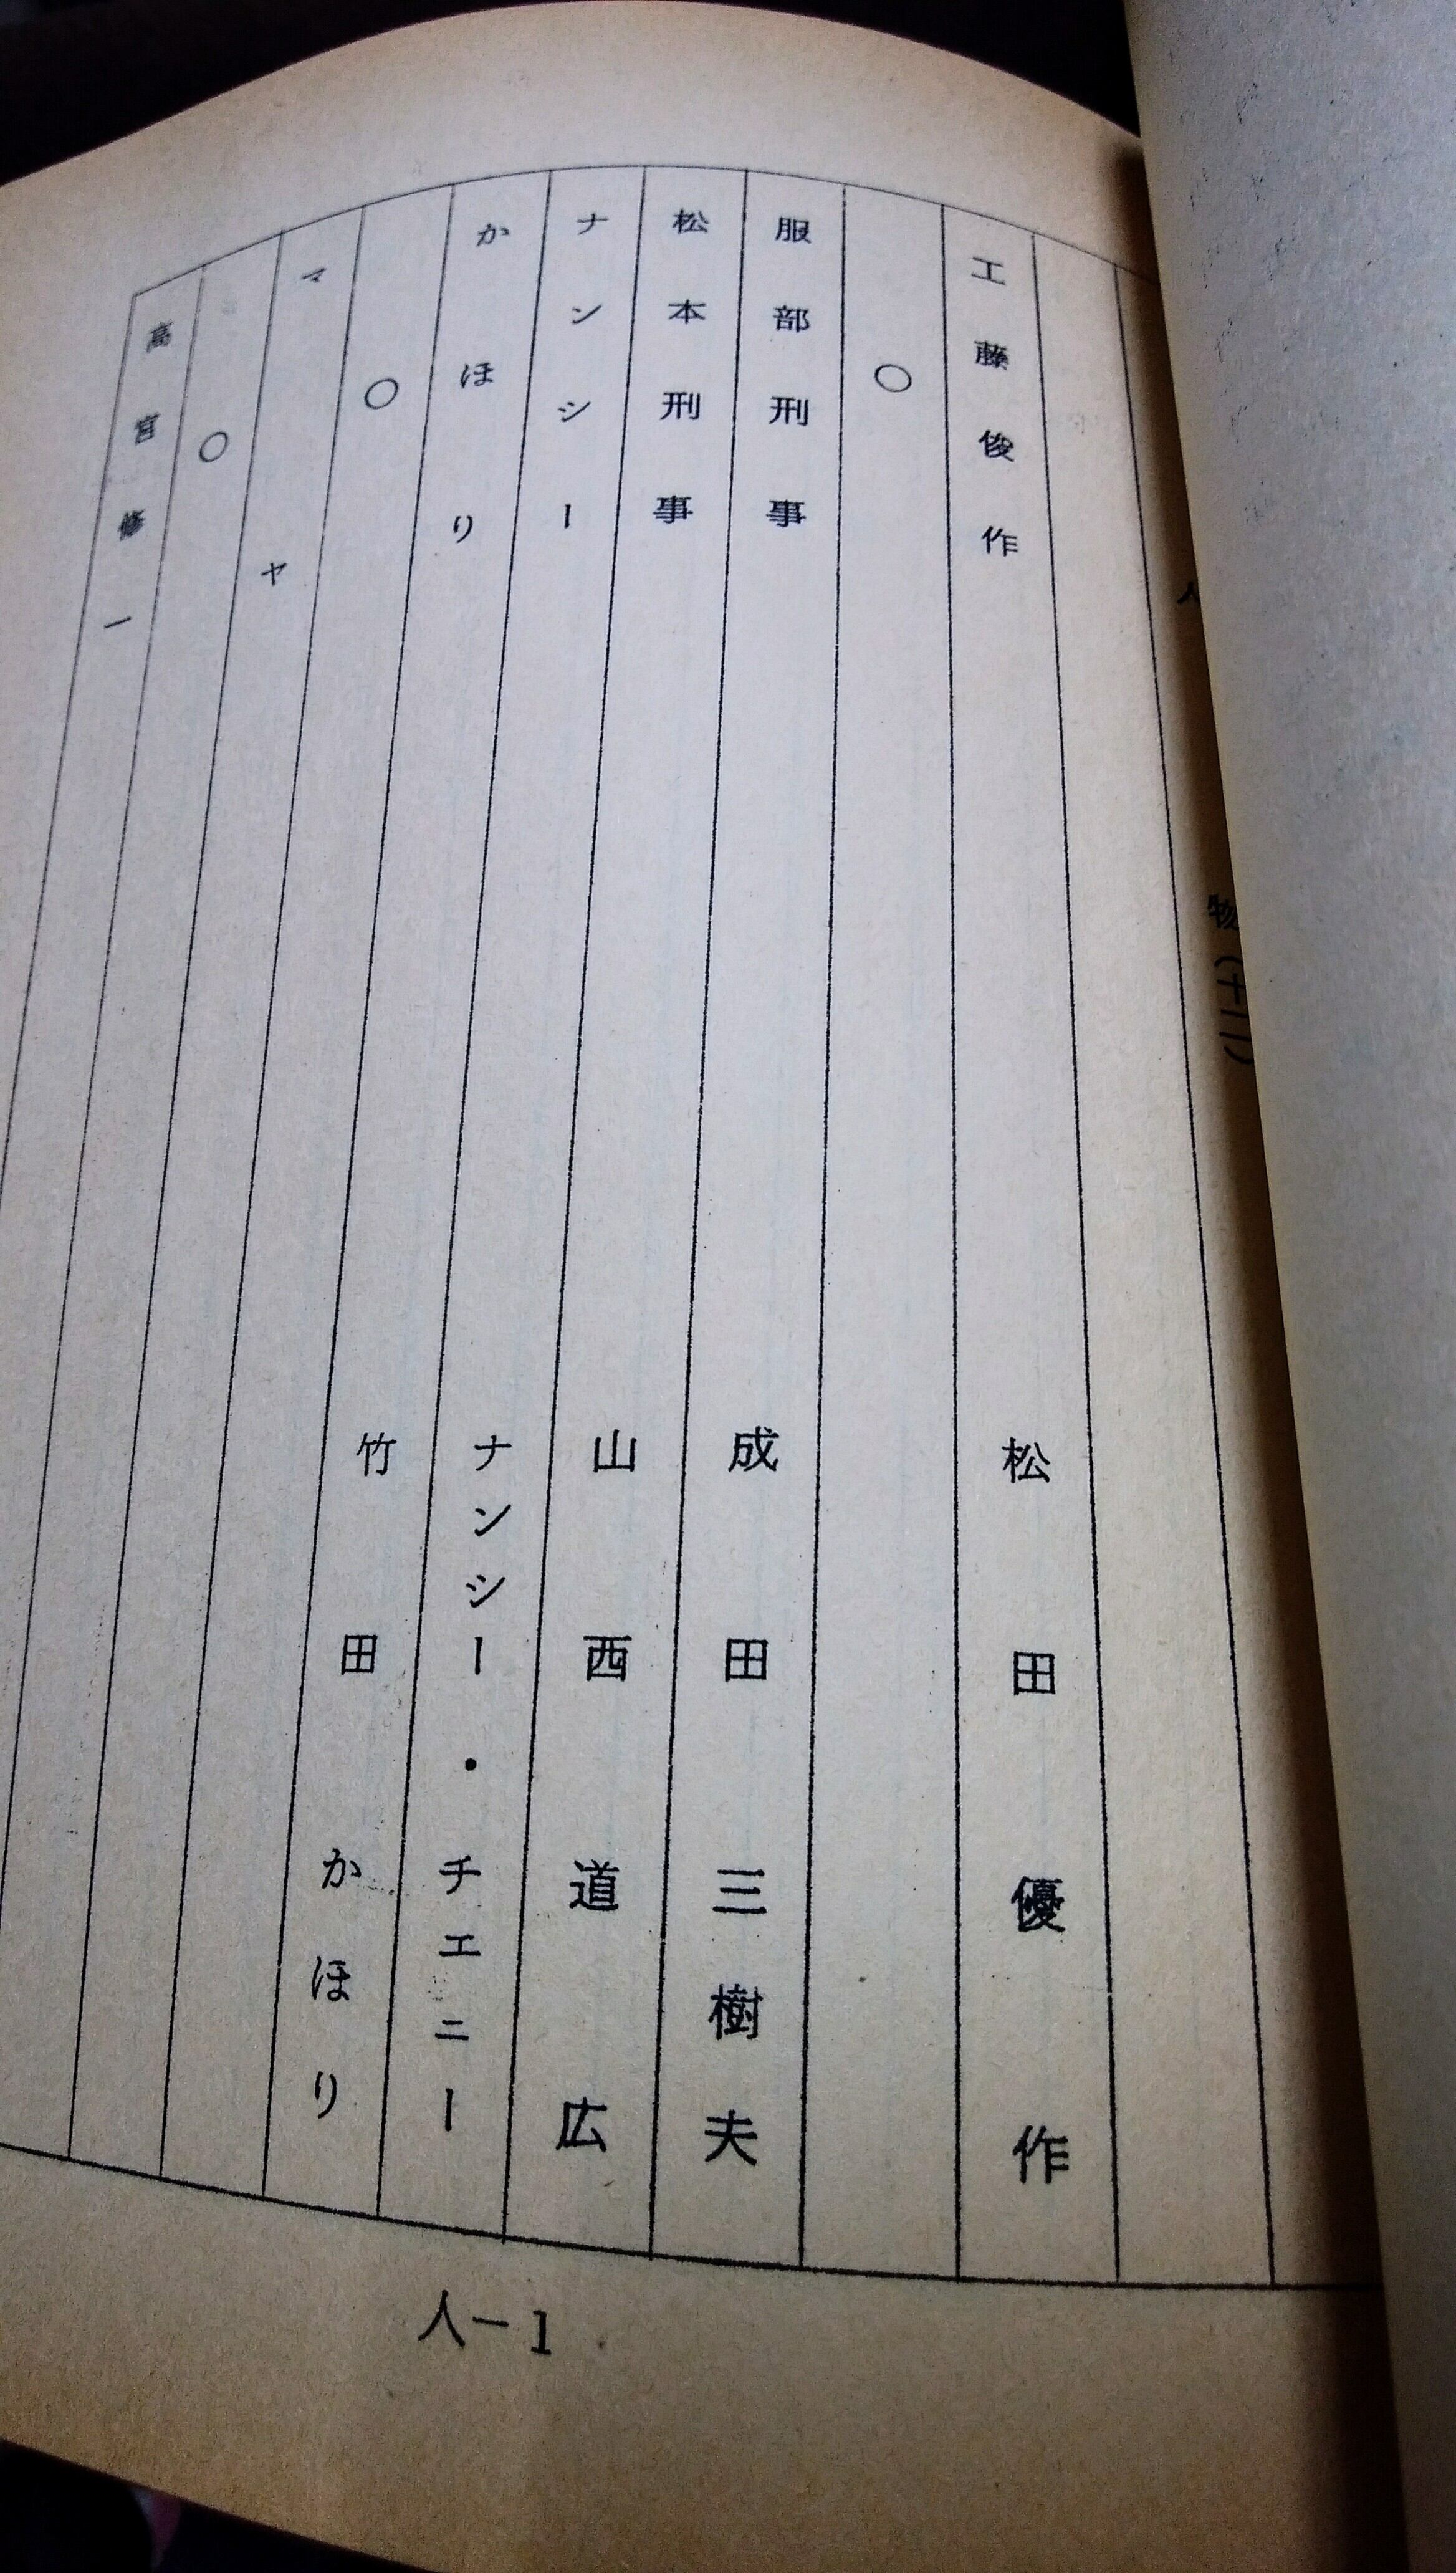 人物(十二)
工藤俊作 松田優作
○
服部刑事 成田三樹夫
松本刑事 山西道広
ナンシー ナンシー・チェニー
かほり 竹田かほり
○
マヤ
○
高宮修一
人ー1